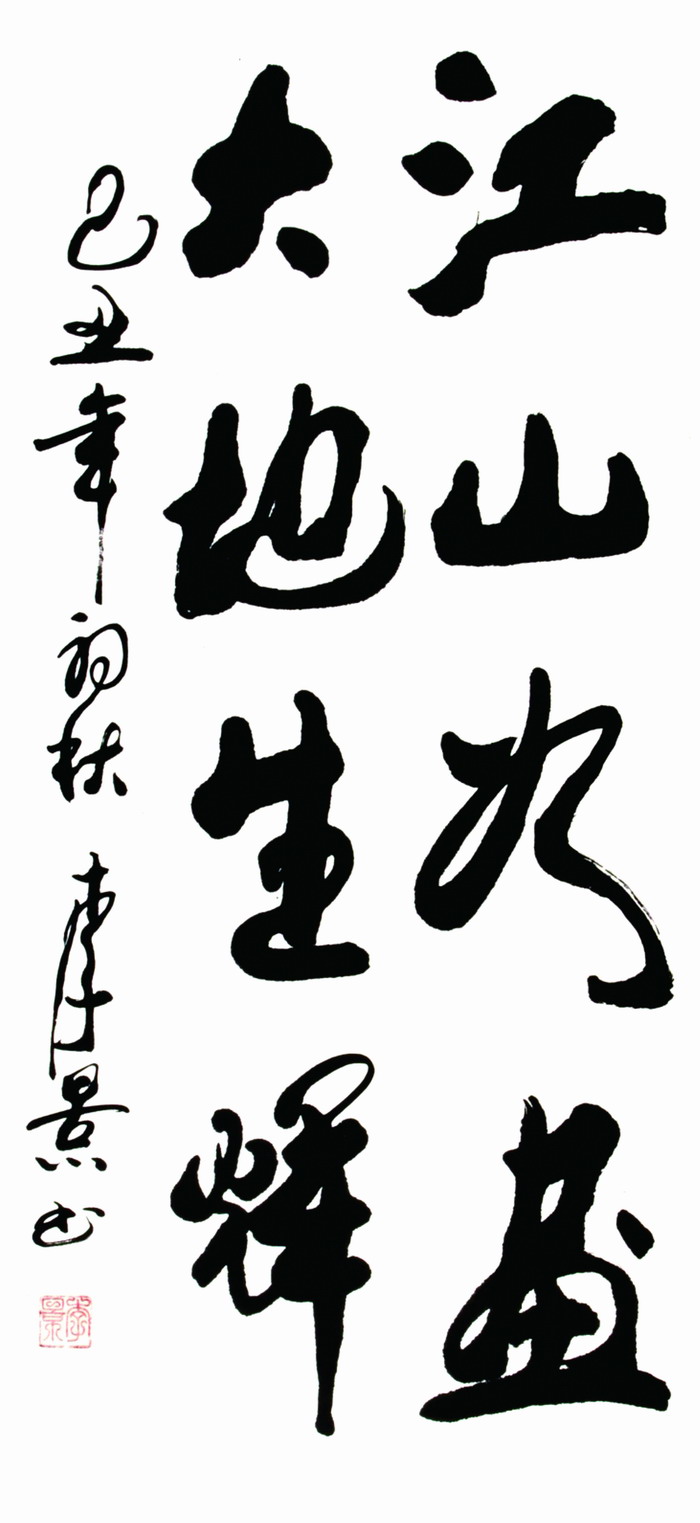 江山如畫
大地生輝
己丑年初秋 李景书
李景